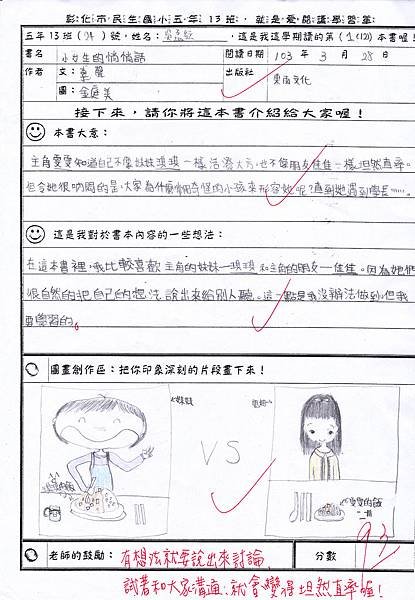 彰化市民生國小五年13班，就是愛閱讀學習單
五年13班(24)號，姓名： ，這是我這學期讀的第(1(12))本書喔！
書名 小女生的悄悄話 閱讀日期 103年3月28日
作者 文：韋麗 圖：金庭美 出版社 東雨文化
接下來，請你將這本書介紹給大家喔！
本書大意：
主角雯雯知道自己不像妹妹現現一樣活潑大方，也不像朋友佳佳一樣坦然直率。
但令她很納悶的是，大家為什麼會用奇怪的小孩來形容她呢？直到她遇到學長……。
這是我對於書本內容的一些想法：
在這本書裡，我比較喜歡主角的妹妹—現現和主角的朋友—佳佳。因為她們
很自然的把自己的想法說出來給別人聽。這一點是我沒辦法做到，但我
要學習的。
圖畫創作區：把你印象深刻的片段畫下來！
妹妹
VS
雯雯的飯
老師的鼓勵： 有想法就要說出來討論， 分數 93
試著和大家溝通，就會變得坦然直率喔！